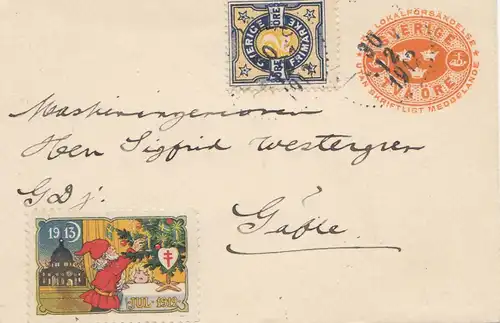 SVERIGE
2 ÖRE
FRIMÄRKE
LOKALFÖRSÄNDELSE
SVERIGE
ÖRE
UTAN SKRIFTLIGT MEDDELANDE
30
12
Maskiningeniören
Herr Sigfrid Westergren
G.D.j.
Gäfle.
1913
JUL·1912